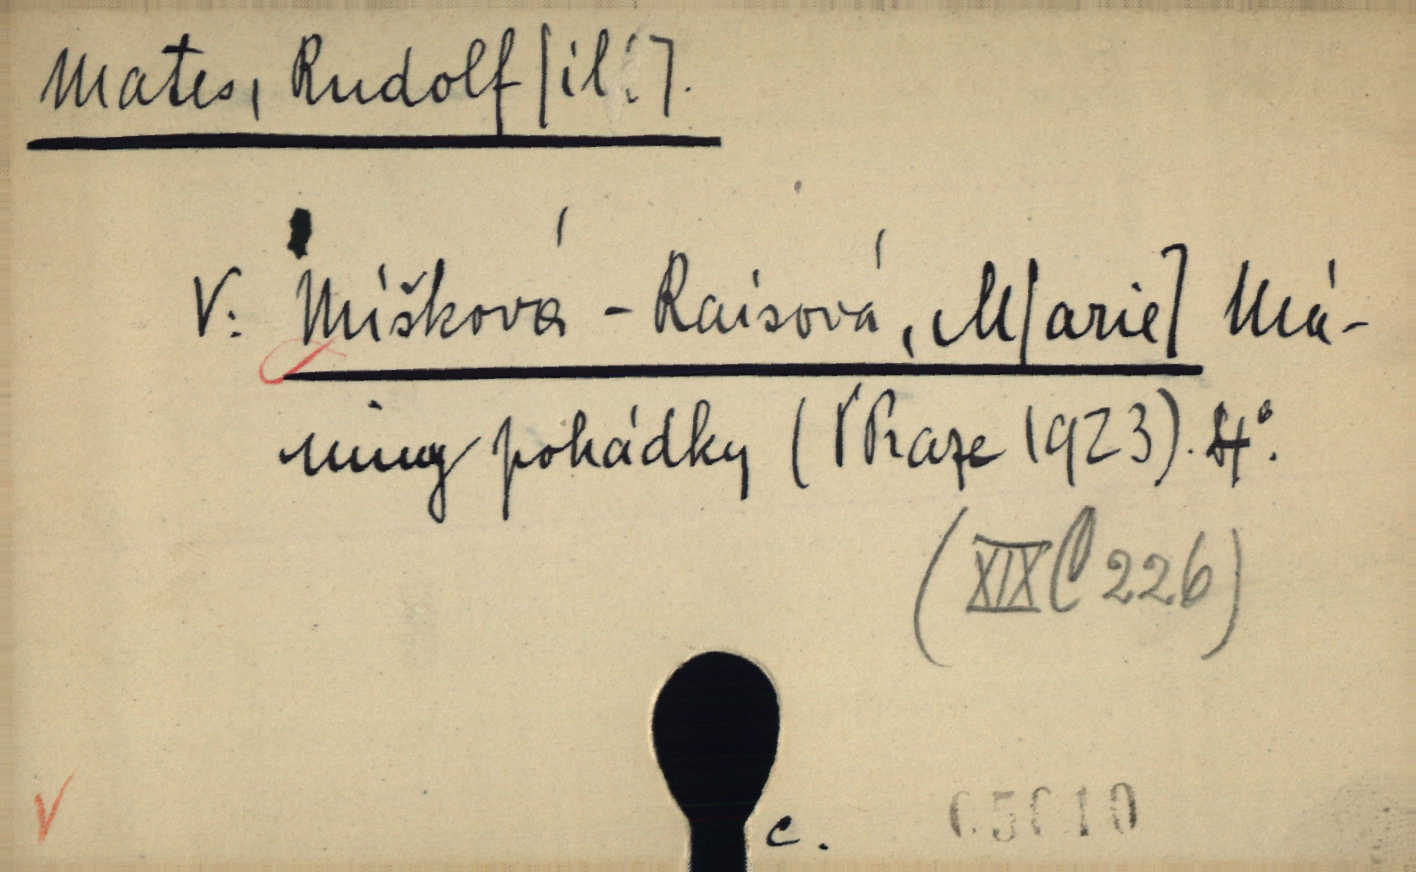 Mates, Rudolf [il.].
V: Míšková - Raisová, M[arie] Má-
miny pohádky (V Praze 1923). 4°.
(XIX C 226)
c.
05010
V